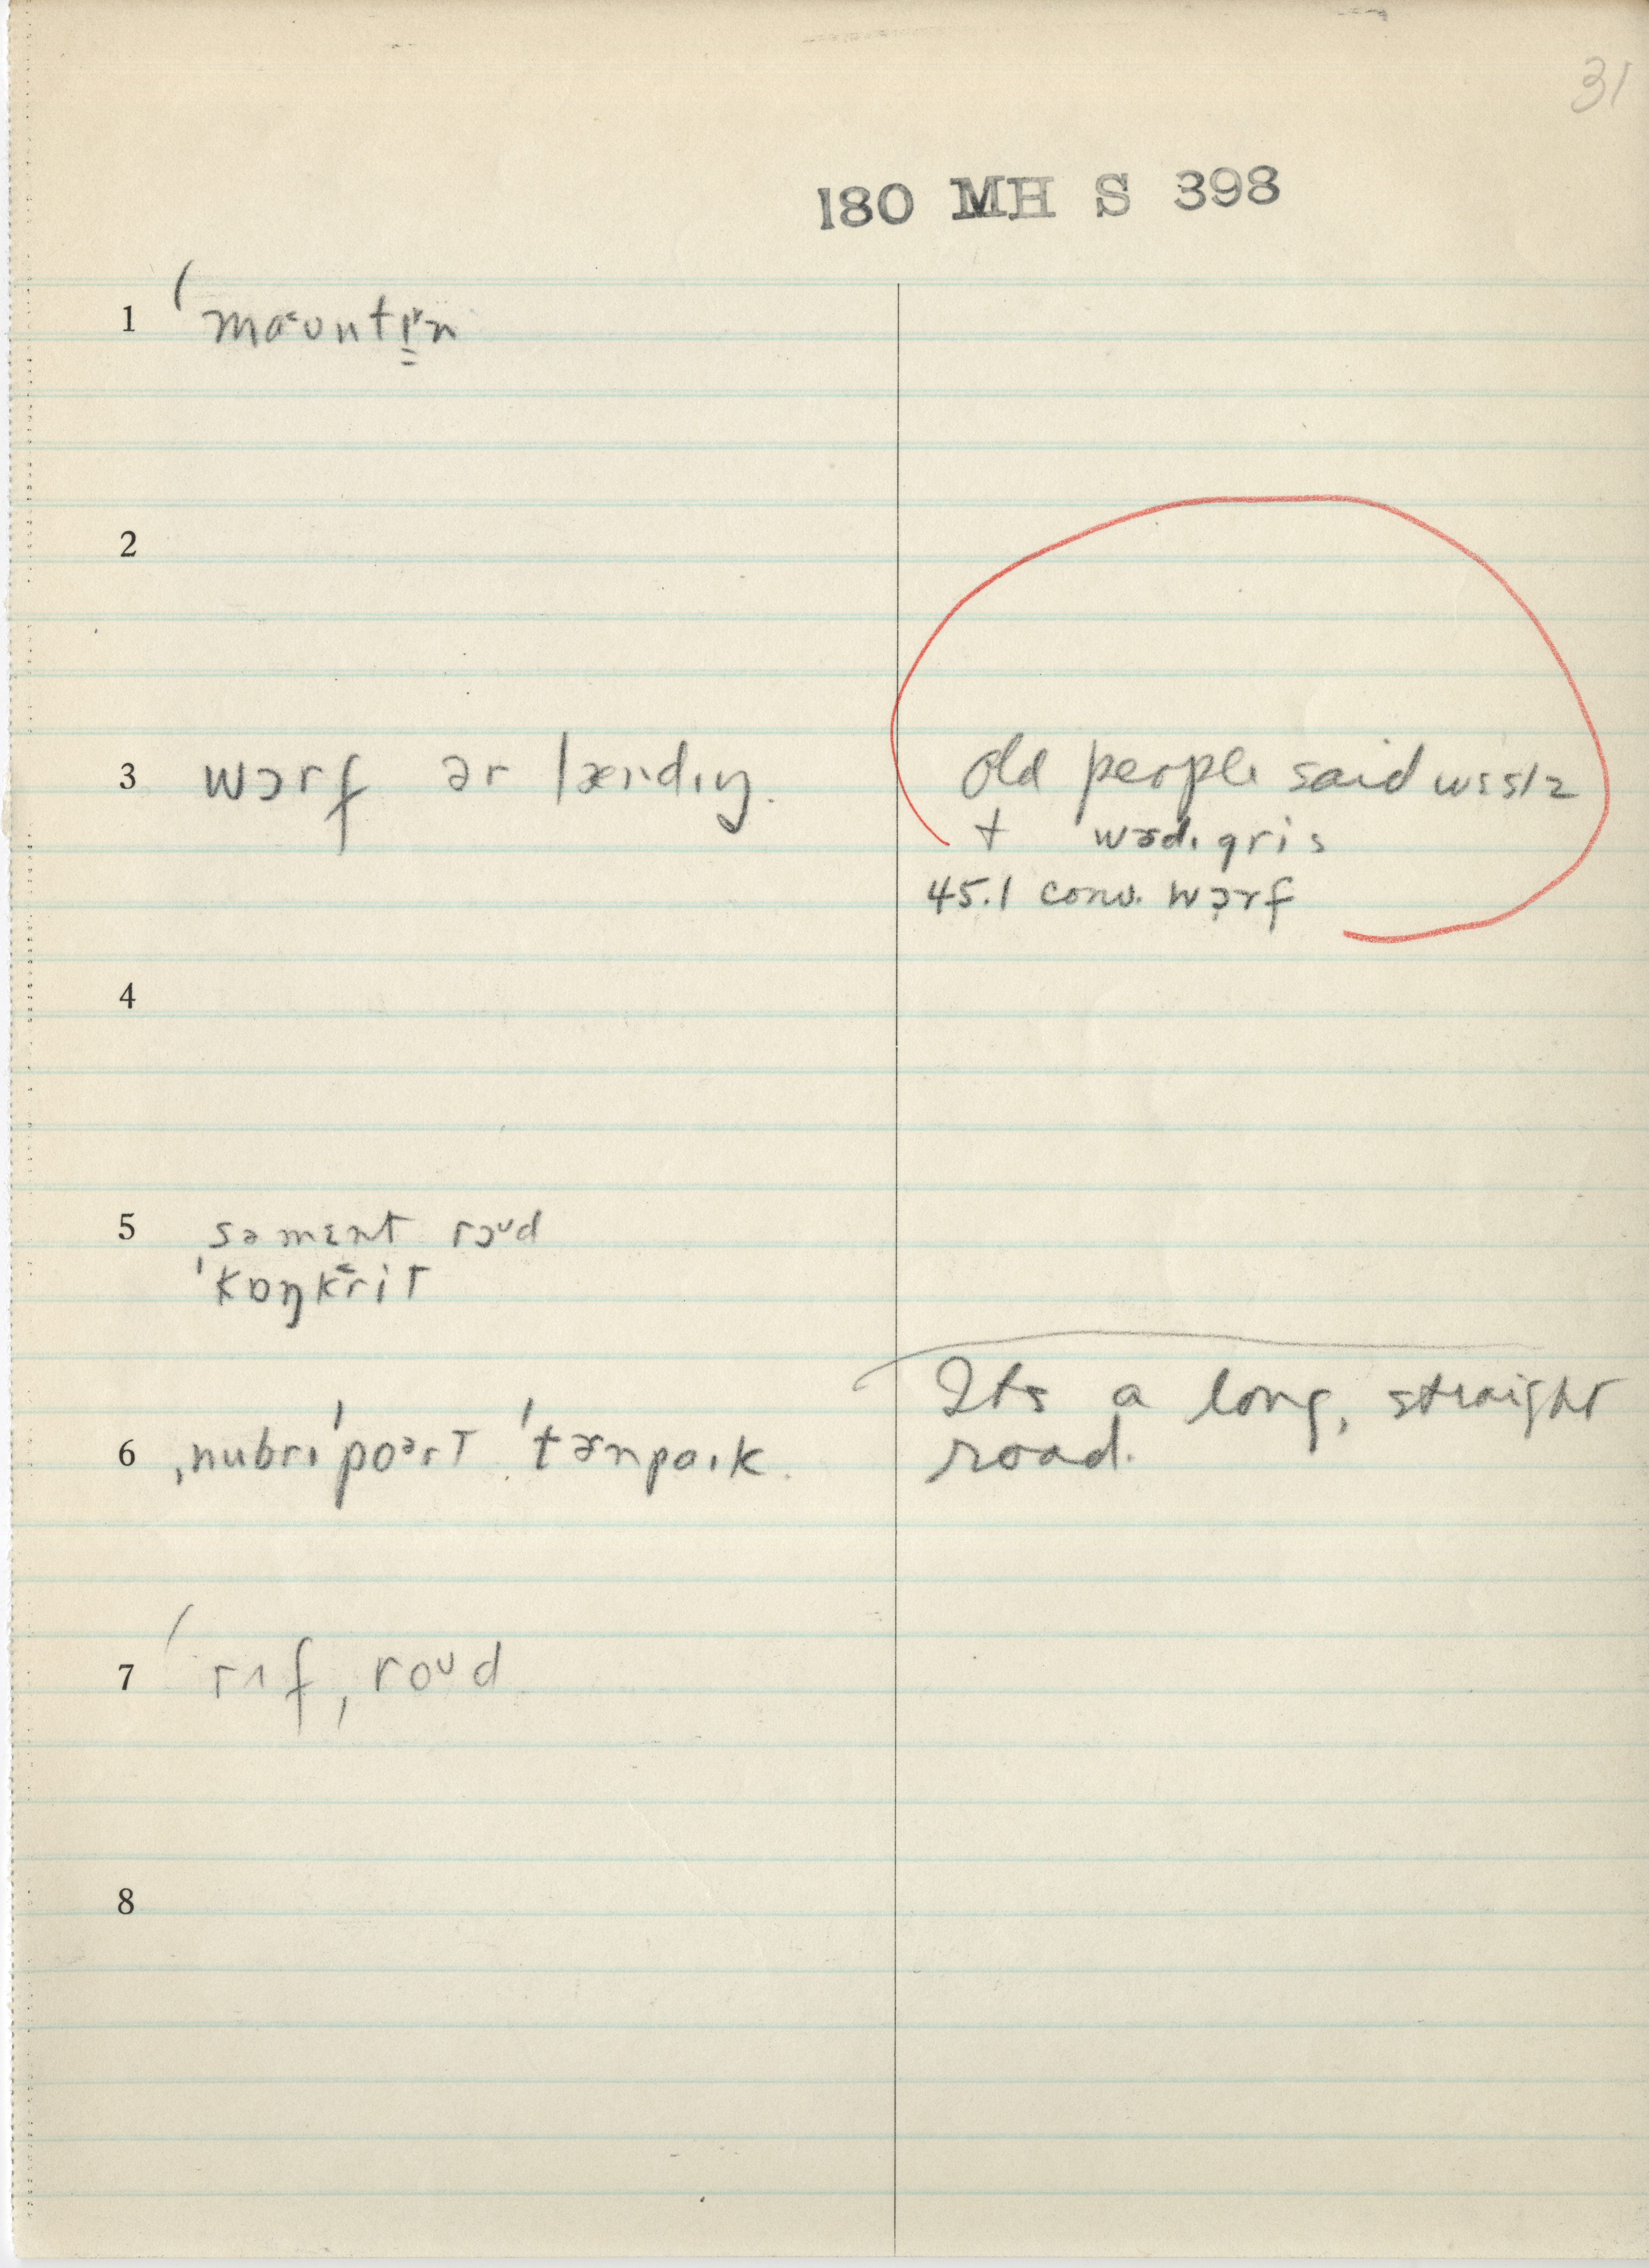 31
180 MH S 398
1 ˈmaˑʊntɪ̱n
2
3 wɔrf ər lændɪŋ. old people said wɛslz
+ wɚdɪgris
45.1 conv. wɔrf
4
5 səmɛnt roʊd
ˈkɒŋkrit
6 ˌnubrɪˈpoərt ˈtɚnpaɪk. Its a long, straight
road.
7 ˈrʌfˌroʊd
8